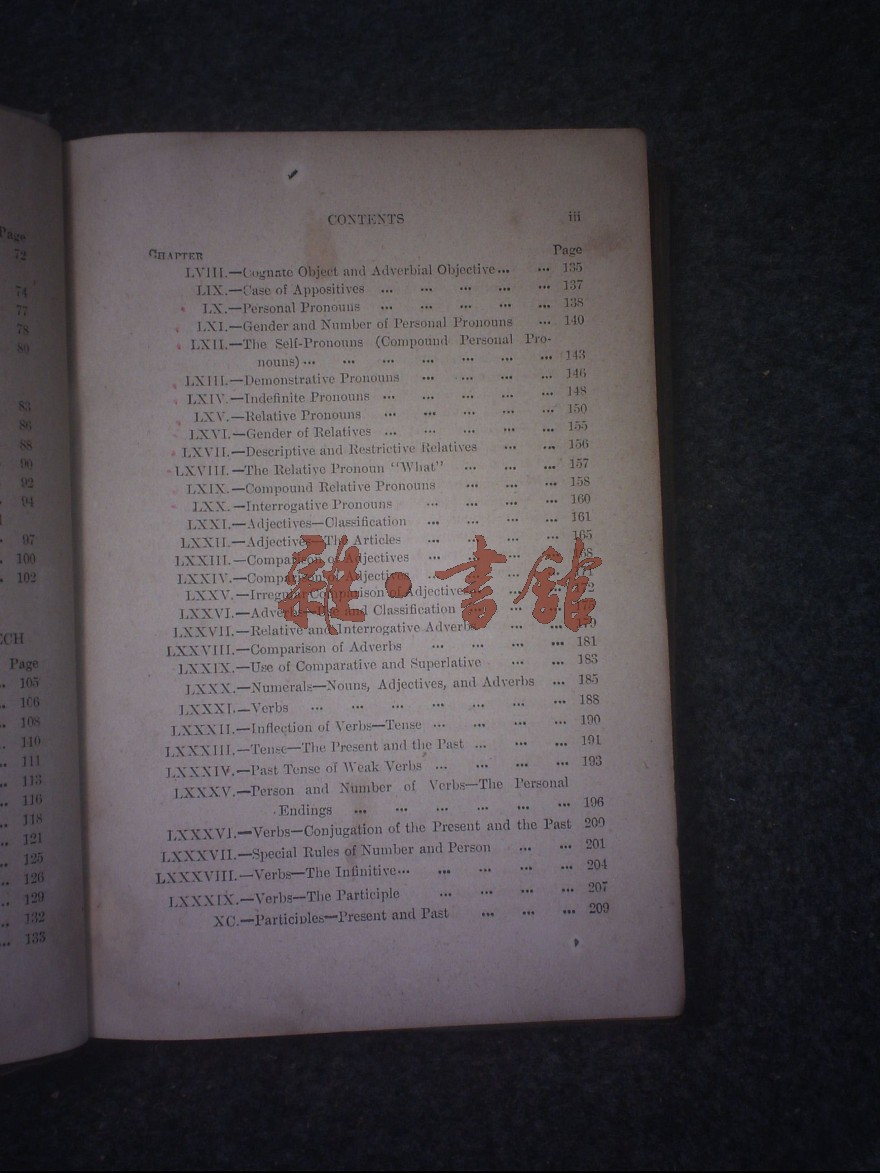 Page
72
74
77
78
80
83
86
88
90
92
94
97
100
102
ECH
Page
105
106
108
110
111
113
116
118
121
125
126
129
132
133
CONTENTS iii
CHAPTER Page
LVIII.—Cognate Object and Adverbial Objective... ... 135
LIX.—Case of Appositives ... ... ... ... ... 137
LX.—Personal Pronouns ... ... ... ... ... 138
LXI.—Gender and Number of Personal Pronouns ... 140
LXII.—The Self-Pronouns (Compound Personal Pro-
nouns) ... ... ... ... ... ... ... 143
LXIII.—Demonstrative Pronouns ... ... ... ... 146
LXIV.—Indefinite Pronouns ... ... ... ... ... 148
LXV.—Relative Pronouns ... ... ... ... ... 150
LXVI.—Gender of Relatives ... ... ... ... ... 155
LXVII.—Descriptive and Restrictive Relatives ... ... 156
LXVIII.—The Relative Pronoun "What" ... ... ... 157
LXIX.—Compound Relative Pronouns ... ... ... 158
LXX.—Interrogative Pronouns ... ... ... ... 160
LXXI.—Adjectives—Classification ... ... ... ... 161
LXXII.—Adjectives—The Articles ... ... ... ... 165
LXXIII.—Comparison of Adjectives ... ... ...
LXXIV.—Comparison of Adjectives ... ... ...
LXXV.—Irregular Comparison of Adjectives ... ... 172
LXXVI.—Adverbs—Use and Classification ... ... ...
LXXVII.—Relative and Interrogative Adverbs ... ... 179
LXXVIII.—Comparison of Adverbs ... ... ... ... 181
LXXIX.—Use of Comparative and Superlative ... ... 183
LXXX.—Numerals—Nouns, Adjectives, and Adverbs ... 185
LXXXI.—Verbs ... ... ... ... ... ... ... 188
LXXXII.—Inflection of Verbs—Tense ... ... ... ... 190
LXXXIII.—Tense—The Present and the Past ... ... ... 191
LXXXIV.—Past Tense of Weak Verbs ... ... ... ... 193
LXXXV.—Person and Number of Verbs—The Personal
Endings ... ... ... ... ... ... 196
LXXXVI.—Verbs—Conjugation of the Present and the Past 200
LXXXVII.—Special Rules of Number and Person ... ... 201
LXXXVIII.—Verbs—The Infinitive... ... ... ... ... 204
LXXXIX.—Verbs—The Participle ... ... ... ... 207
XC.—Participles—Present and Past ... ... ... 209
雜·書館